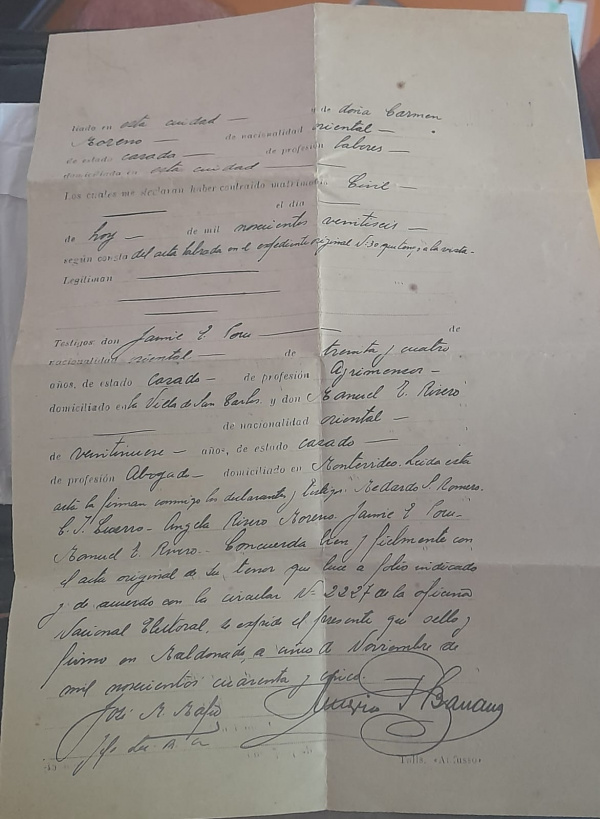 liada en esta ciudad — y de doña Carmen
Moreno — de nacionalidad oriental —
de estado casada — de profesión labores —
domiciliada en esta ciudad
Los cuales me declaran haber contraído matrimonio Civil —
el día
de hoy — de mil novecientos veintiseis —
según consta del acta labrada en el expediente original N. 30 que tengo a la vista.
Legitiman
Testigos: don Jaime E. — de
nacionalidad oriental — de treinta y cuatro
años, de estado casado — de profesión Agrimensor —
domiciliado en la Villa de San Carlos y don Manuel E. Rivero
de nacionalidad oriental —
de veintinueve — años, de estado casado —
de profesión Abogado — domiciliado en Montevideo. Leida esta
acta la firman conmigo los declarantes y testigos. Medardo S. Romero.
Angela Rivero Moreno. Jaime E.
Manuel E. Rivero — Concuerda bien y fielmente con
el acta original de su tenor que luce a folio indicado
y de acuerdo con la circular N- 2227 de la oficina
Nacional Electoral, se expide el presente que sello y
firmo en Maldonado, a cinco de Noviembre de
mil novecientos cuarenta y cinco.
José M.
Talls.